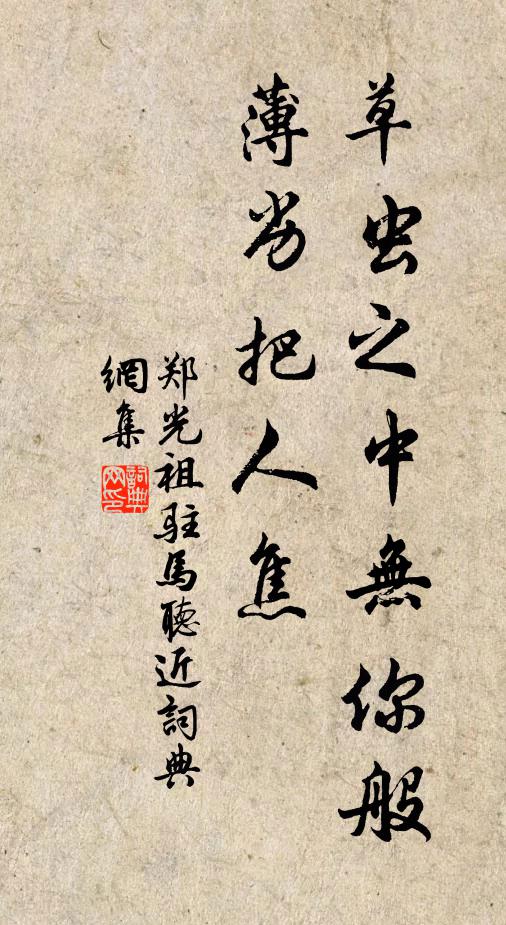 草虫之中無你般
薄劣把人焦
郑光祖駐馬聽近詞典
網集
詞典網印